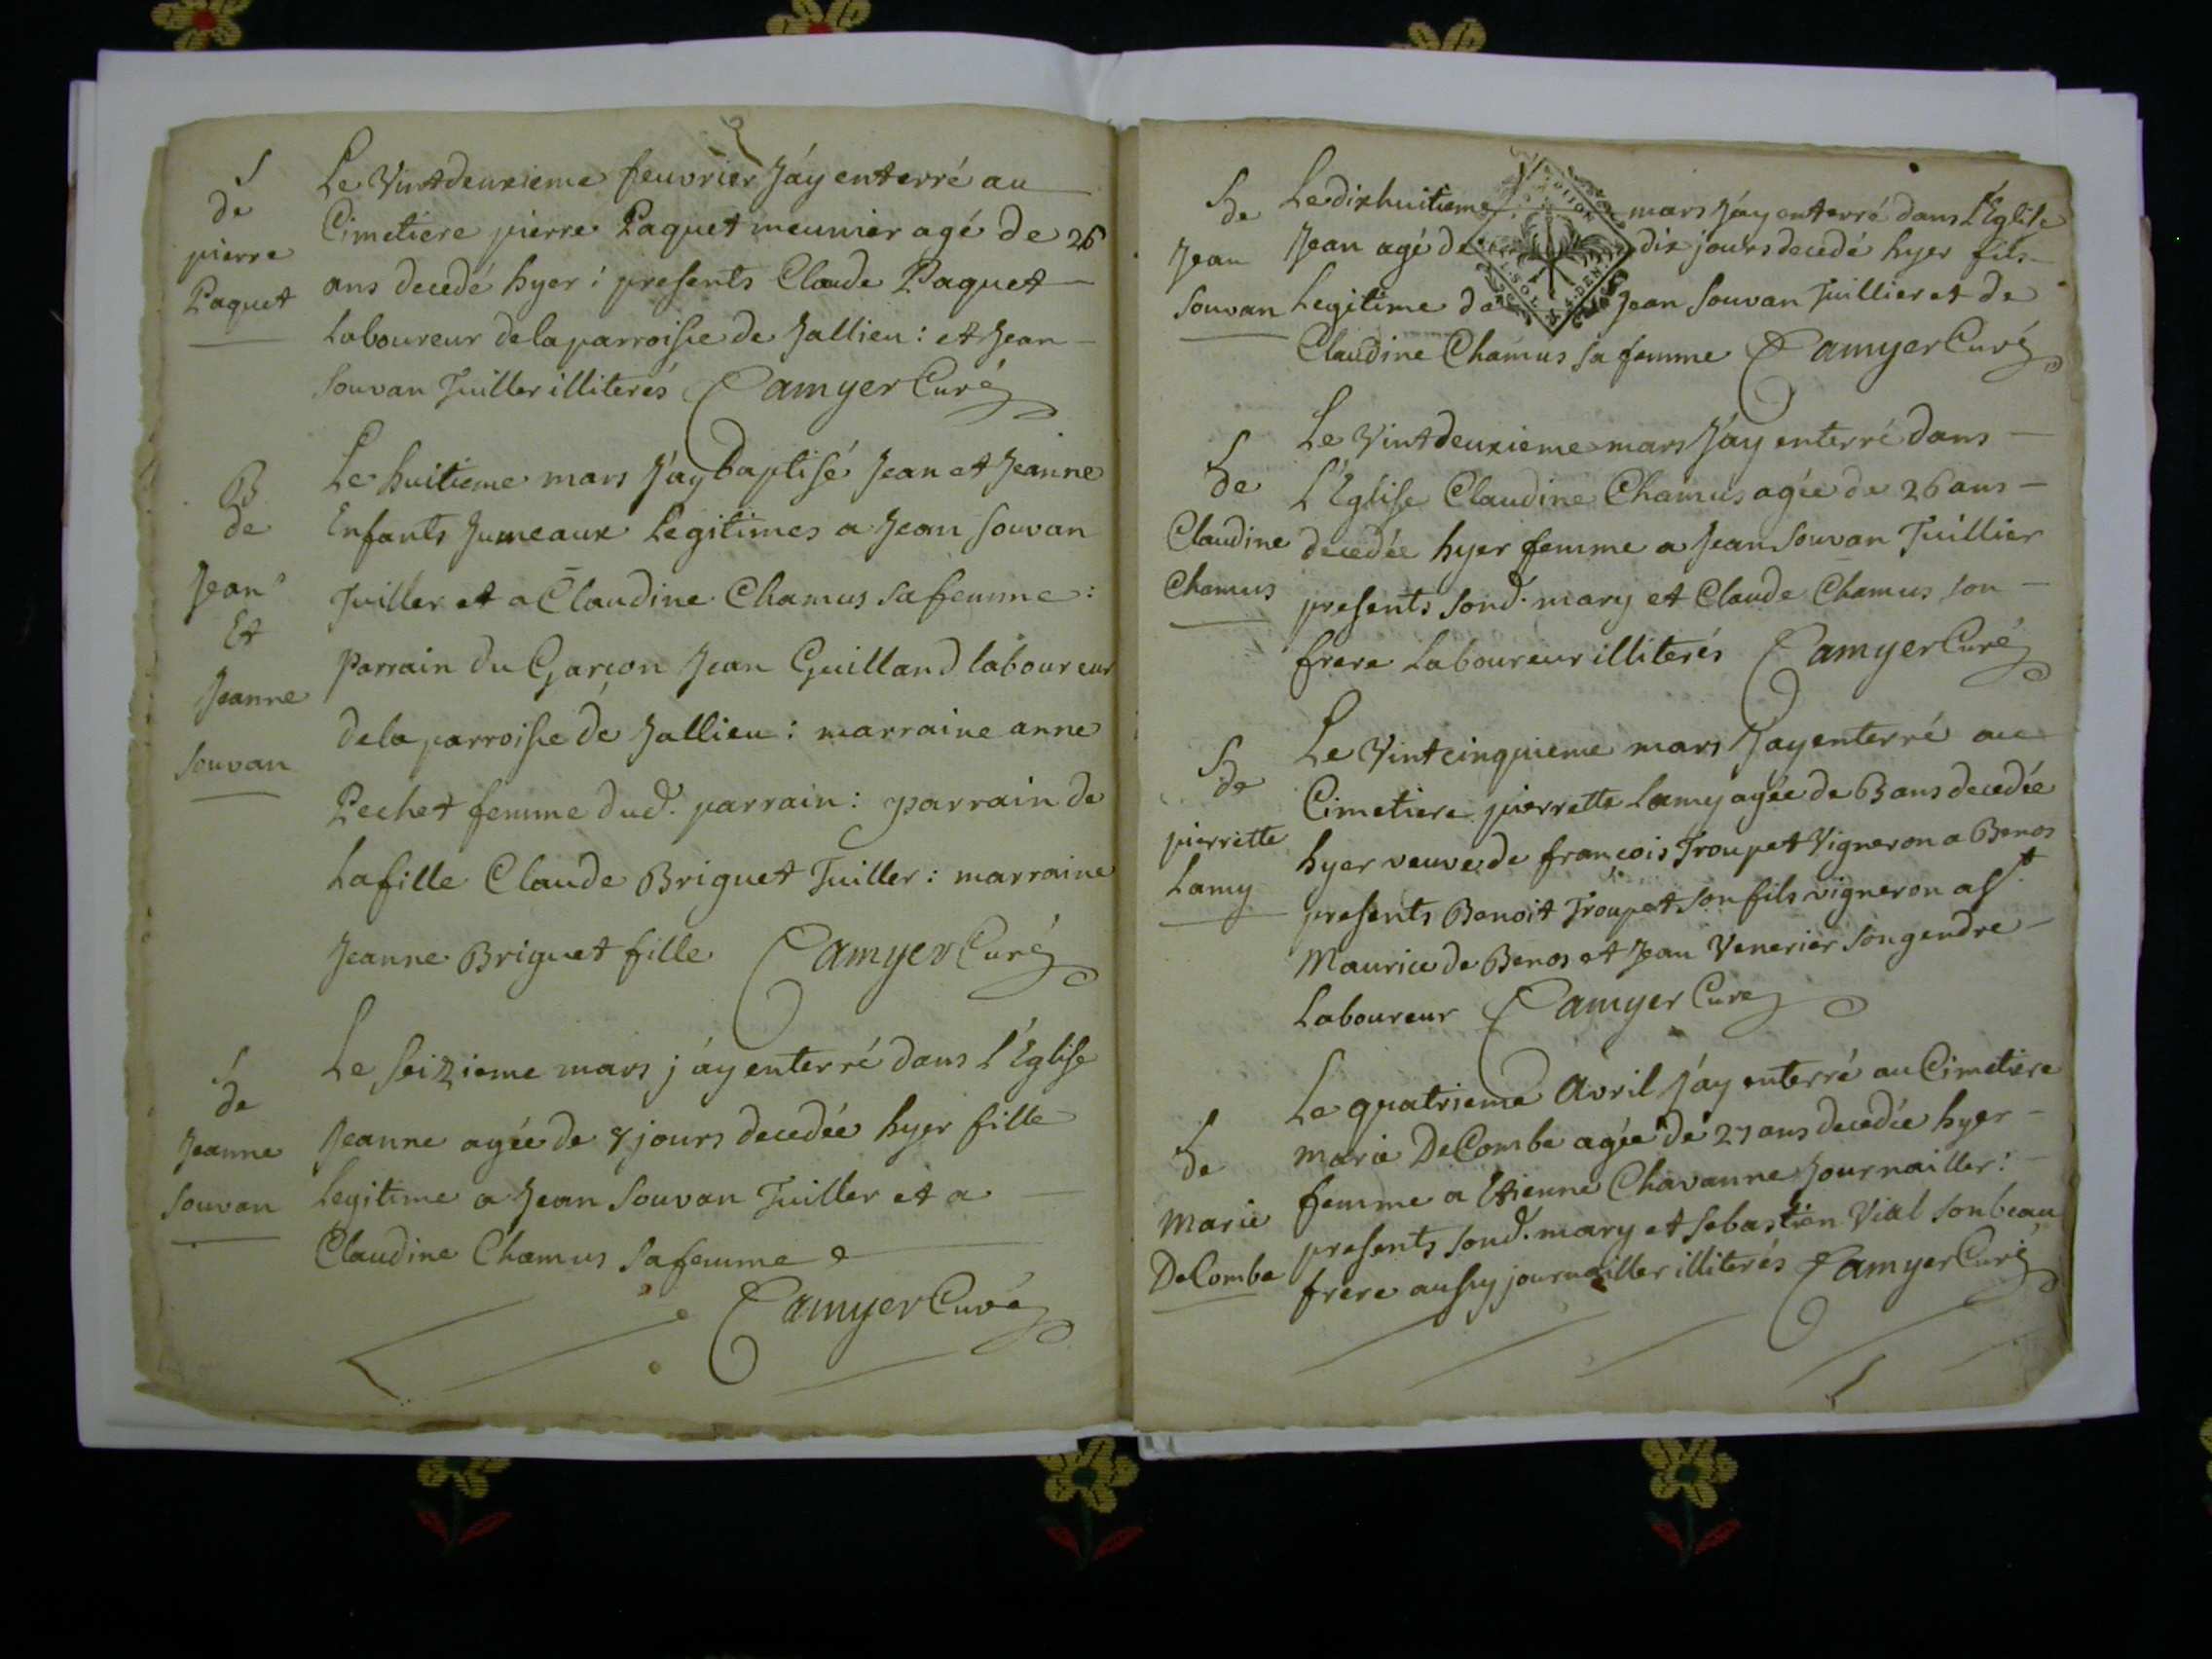 S
de
pierre
Paquet
Le Vintdeuxieme feuvrier J'ay enterré au
Cimetiere pierre Paquet meunier agé de 26
ans decedé hyer : presents Claude Paquet
Laboureur de la parroisse de Jallieu : et Jean
Souvan Tuiller illiterés Camyer Curé
B
de
Jean
Et
Jeanne
Souvan
Le huitieme mars J'ay baptisé Jean et Jeanne
Enfants Jumeaux Legitimes a Jean Souvan
Tuiller et a Claudine Chamus sa femme :
Parrain du Garçon Jean Guilland laboureur
de la parroisse de Jallieu : marraine anne
Pechet femme dud. parrain : parrain de
La fille Claude Briguet Tuiller : marraine
Jeanne Briguet fille Camyer Curé
S
de
Jeanne
Souvan
Le Seizieme mars j'ay enterré dans l'Eglise
Jeanne agée de 8 jours decedée hyer fille
Legitime a Jean Souvan Tuiller et a
Claudine Chamus sa femme
Camyer Curé
S
de
Jean
Souvan
Le dixhuitieme mars J'ay enterré dans l'Eglise
Jean agé de dix jours decedé hyer fils
Legitime de Jean Souvan Tuillier et de
Claudine Chamus sa femme Camyer Curé
SOL DEN.
S
de
Claudine
Chamus
Le Vintdeuxieme mars J'ay enterré dans
L'Eglise Claudine Chamus agée de 26 ans
decedée hyer femme a Jean Souvan Tuillier
presents sond. mary et Claude Chamus son
frere Laboureur illiterés Camyer Curé
S
de
pierrette
Lamy
Le Vintcinquieme mars J'ay enterré au
Cimetiere pierrette Lamy agée de ans decedée
hyer veuve de françois Troupet Vigneron a Benos
presents Benoit Troupet son fils vigneron a St
Maurice de Benos et Jean Venerier son gendre
Laboureur Camyer Curé
S
de
Marie
DeCombe
Le quatrieme Avril J'ay enterré au Cimetiere
Marie DeCombe agée de 27 ans decedée hyer
femme a Etienne Chavanne Journailler :
presents sond. mary et Sebastien Vial son beau
frere aussy journailler illiterés Camyer Curé